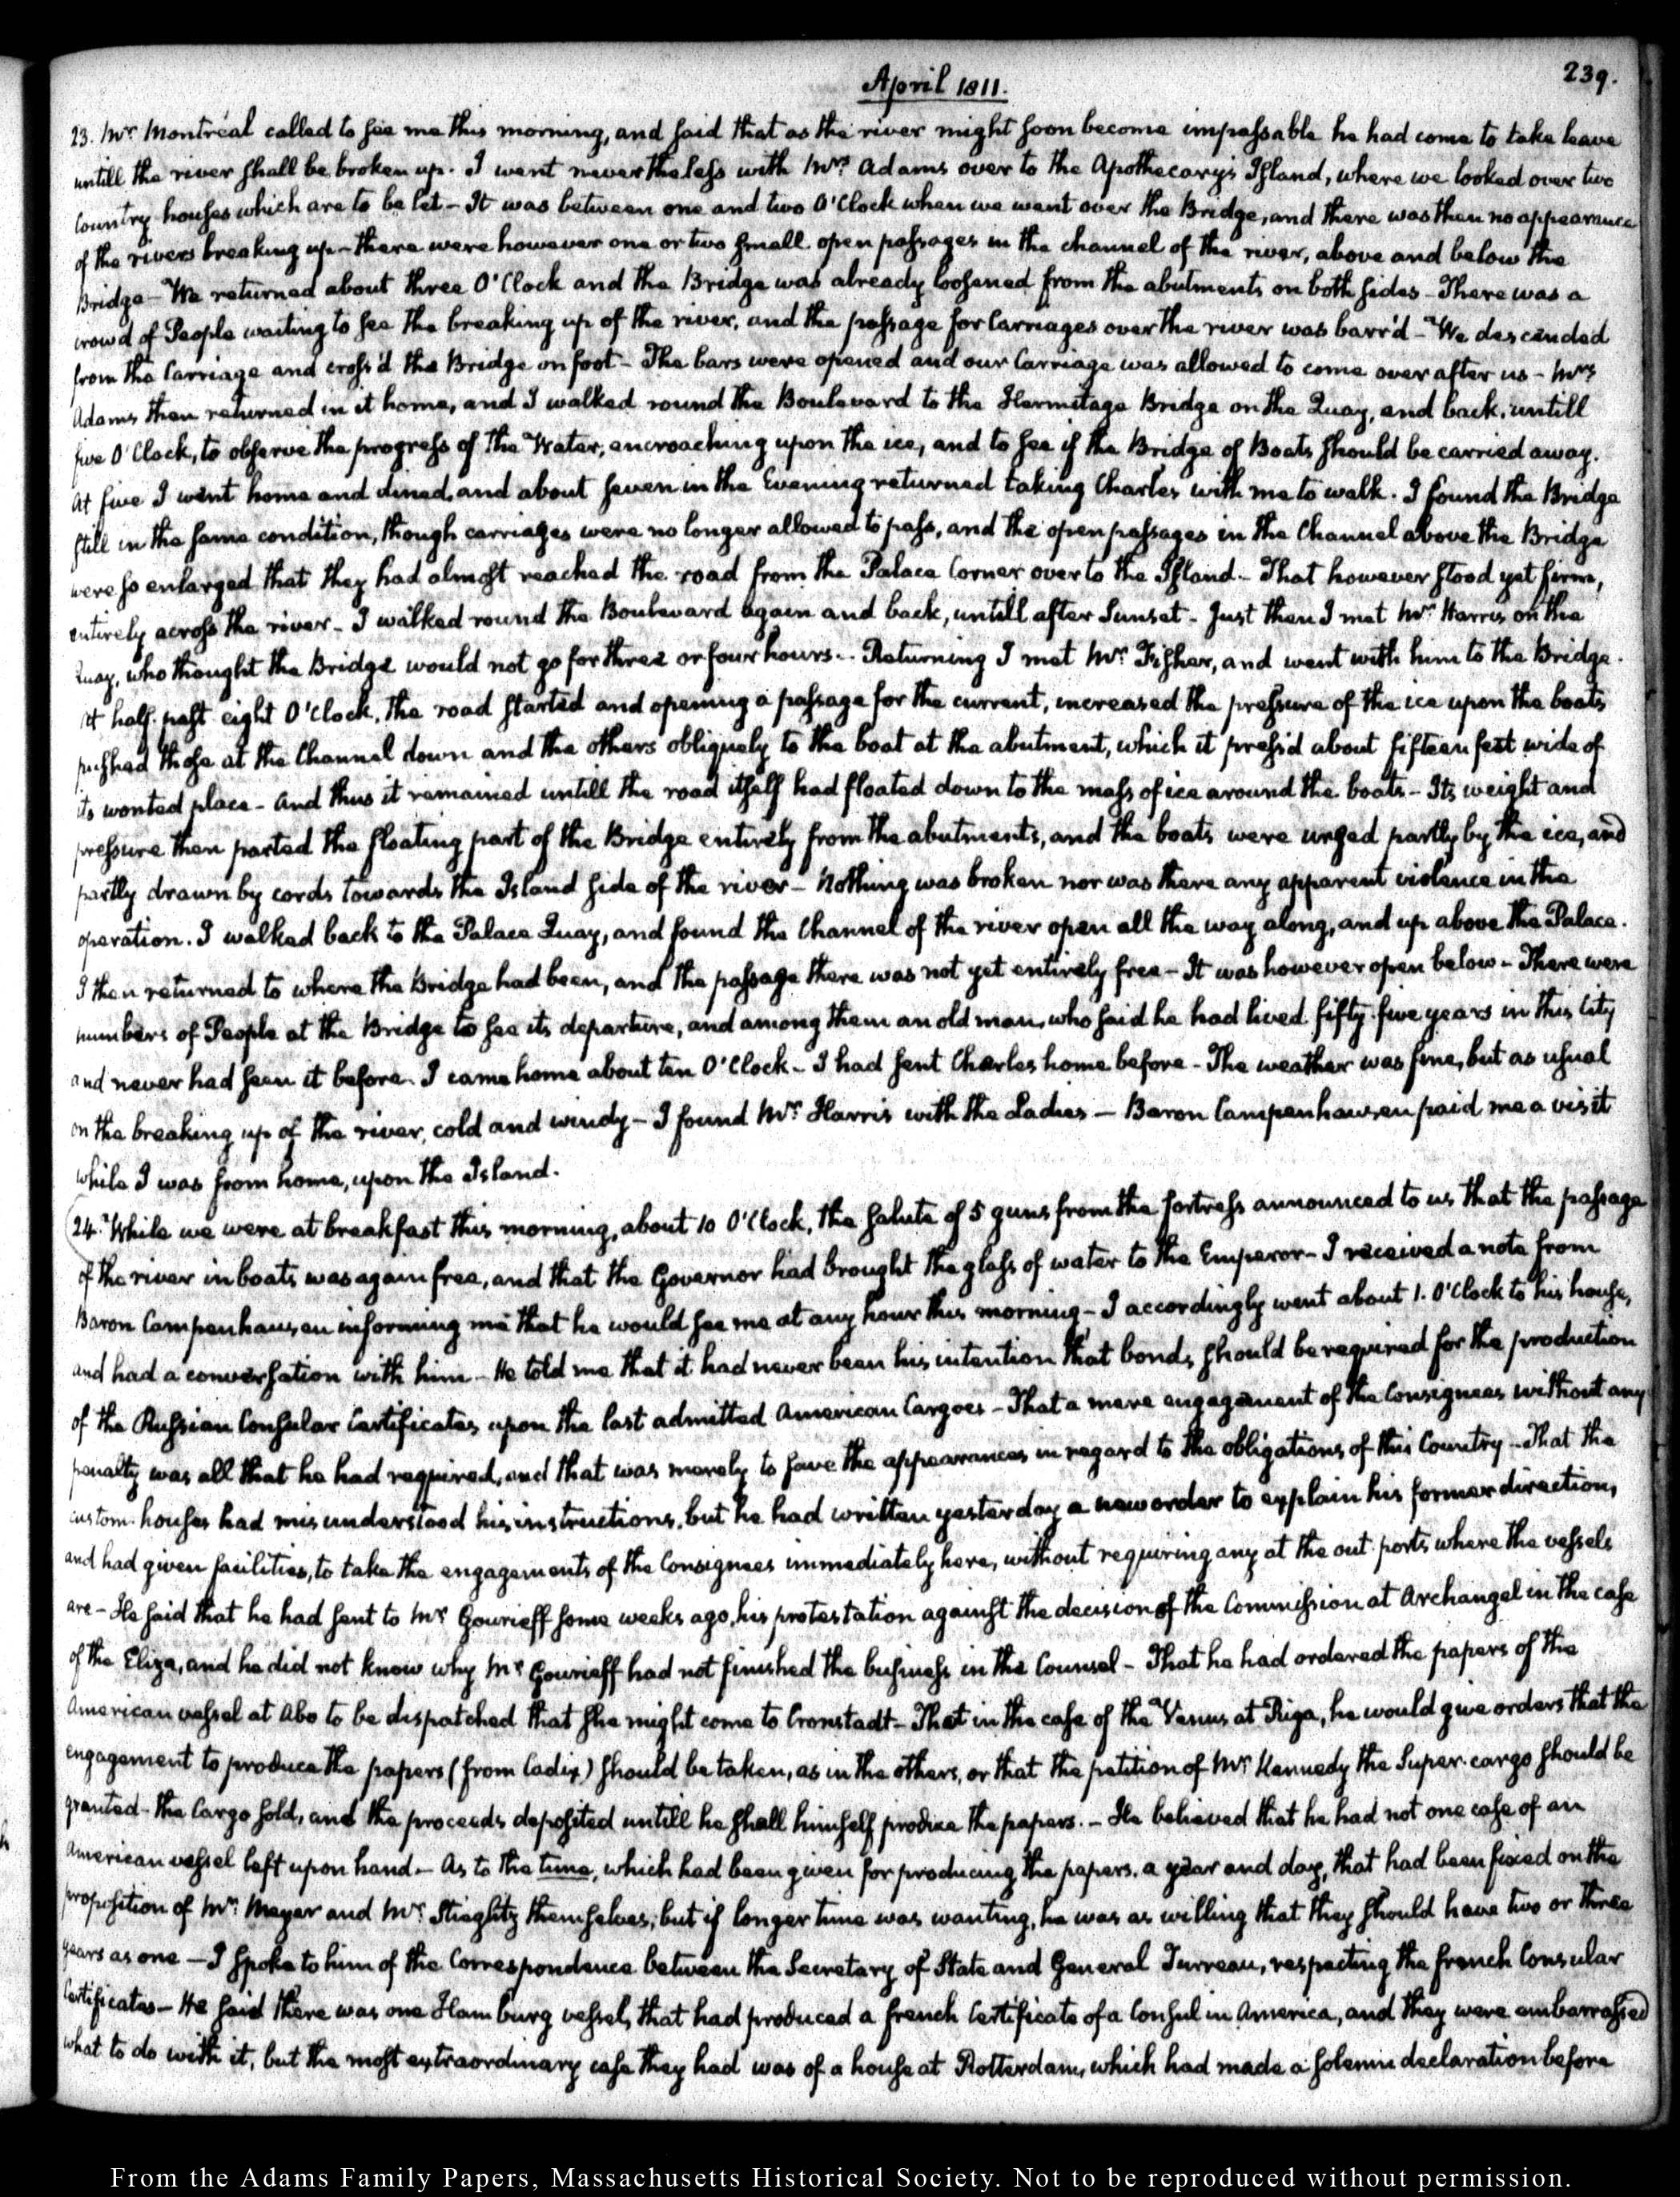 April 1811.
239.
23. Mr. Montréal called to see me this morning, and said that as the river might soon become impassable he had come to take leave
untill the river shall be broken up. I went nevertheless with Mrs. Adams over to the Apothecary's Island, where we looked over two
Country houses which are to be let - It was between one and two O'Clock when we went over the Bridge, and there was then no appearance
of the rivers breaking up - there were however one or two small open passages in the channel of the river, above and below the
Bridge - We returned about three O'Clock and the Bridge was already loosened from the abutments on both sides - There was a
crowd of People waiting to see the breaking up of the river, and the passage for Carriages over the river was barr'd - We descended
from the Carriage and cross'd the Bridge on foot - The bars were opened and our Carriage was allowed to come over after us - Mrs
Adams then returned in it home, and I walked round the Boulevard to the Hermitage Bridge on the Quay, and back, untill
five O'Clock, to observe the progress of the Water, encroaching upon the ice, and to see if the Bridge of Boats should be carried away.
At five I went home and dined, and about seven in the Evening returned taking Charles with me to walk. I found the Bridge
still in the same condition, though carriages were no longer allowed to pass, and the open passages in the Channel above the Bridge
were so enlarged that they had almost reached the road from the Palace Corner over to the Island - That however stood yet firm,
entirely across the river - I walked round the Boulevard again and back, untill after Sunset - Just then I met Mr. Harris on the
Quay, who thought the Bridge would not go for three or four hours. - Returning I met Mr. Fisher, and went with him to the Bridge.
At half past eight O'Clock, the road started and opening a passage for the current, increased the pressure of the ice upon the boats
pushed those at the Channel down and the others obliquely to the boat at the abutment, which it press'd about fifteen feet wide of
its wonted place - And thus it remained untill the road itself had floated down to the mass of ice around the boats - Its weight and
pressure then parted the floating part of the Bridge entirely from the abutments, and the boats were urged partly by the ice, and
partly drawn by cords towards the Island side of the river - Nothing was broken nor was there any apparent violence in the
operation. I walked back to the Palace Quay, and found the Channel of the river open all the way along, and up above the Palace.
I then returned to where the Bridge had been, and the passage there was not yet entirely free - It was however open below - There were
numbers of People at the Bridge to see its departure, and among them an old man, who said he had lived fifty-five years in this City
and never had seen it before. I came home about ten O'Clock - I had sent Charles home before - The weather was fine, but as usual
on the breaking up of the river, cold and windy - I found Mr. Harris with the Ladies - Baron Campenhausen paid me a visit
while I was from home, upon the Island.
24. While we were at breakfast this morning, about 10 O'Clock, the salute of 5 guns from the fortress announced to us that the passage
of the river in boats was again free, and that the Governor had brought the glass of water to the Emperor - I received a note from
Baron Campenhausen informing me that he would see me at any hour this morning - I accordingly went about 1. O'Clock to his house,
and had a conversation with him - He told me that it had never been his intention that bonds should be required for the production
of the Russian Consular Certificates upon the last admitted American Cargoes - That a mere engagement of the Consignees without any
penalty was all that he had required, and that was merely to save the appearances in regard to the obligations of this Country - That the
custom-houses had misunderstood his instructions, but he had written yesterday a new order to explain his former direction,
and had given facilities, to take the engagements of the Consignees immediately here, without requiring any at the out-ports where the vessels
are - He said that he had sent to Mr Gourieff some weeks ago, his protestation against the decision of the Commission at Archangel in the case
of the Eliza, and he did not know why Mr Gourieff had not finished the business in the Counsel - That he had ordered the papers of the
American vessel at Abo to be dispatched that she might come to Cronstadt - That in the case of the Venus at Riga, he would give orders that the
engagement to produce the papers (from Cadix) should be taken, as in the others, or that the petition of Mr. Kennedy the Super-cargo should be
granted - the Cargo sold, and the proceeds deposited untill he shall himself produce the papers. - He believed that he had not one case of an
American vessel left upon hand - As to the time, which had been given for producing the papers, a year and day, that had been fixed on the
proposition of Mr. Meyer and Mr. Stieglitz themselves; but if longer time was wanting, he was as willing that they should have two or three
years as one - I spoke to him of the Correspondence between the Secretary of State and General Turreau, respecting the french Consular
Certificates - He said there was one Hamburg vessel, that had produced a french Certificate of a Consul in America, and they were embarrassed
what to do with it, but the most extraordinary case they had was of a house at Rotterdam, which had made a solemn declaration before
From the Adams Family Papers, Massachusetts Historical Society. Not to be reproduced without permission.